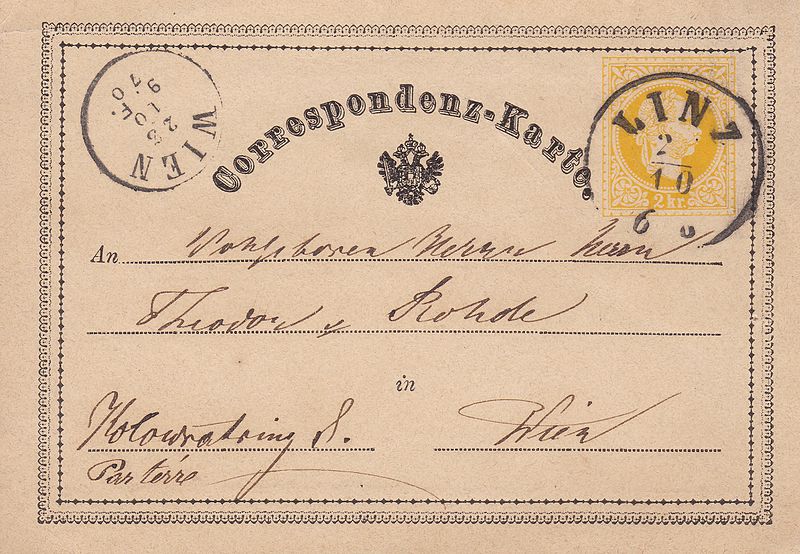 Correspondenz-Karte.
WIEN
23
10 F.
9
70
LINZ
2
10
6
2 kr.
An Herrn
Theodor v Rohde
in
Kolowratring 8. Wien
Parterre